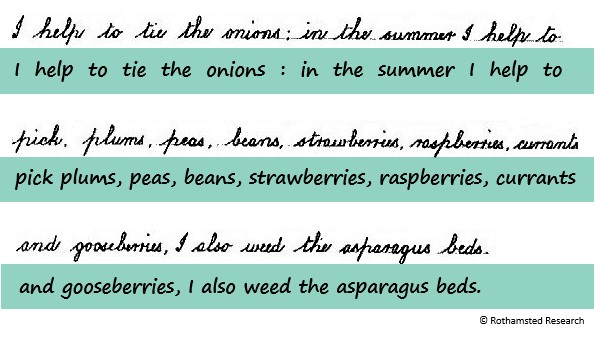 I help to tie the onions : in the summer I help to
I help to tie the onions : in the summer I help to
pick. plums, peas, beans, strawberries, raspberries, currants
pick plums, peas, beans, strawberries, raspberries, currants
and gooseberries, I also weed the asparagus beds.
and gooseberries, I also weed the asparagus beds.
© Rothamsted Research